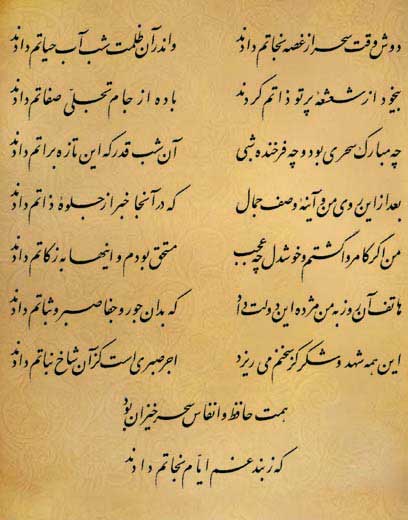 دوش وقت سحر از غصه نجاتم دادند واندر آن ظلمت شب آب حیاتم دادند
بیخود از شعشعهٔ پرتو ذاتم کردند باده از جام تجلّی صفاتم دادند
چه مبارک سحری بود و چه فرخنده شبی آن شب قدر که این تازه براتم دادند
بعد ازین روی من و آینهٔ وصف جمال که در آنجا خبر از جلوهٔ ذاتم دادند
من اگر کامروا گشتم و خوشدل چه عجب مستحق بودم و اینها به زکاتم دادند
هاتف آن روز به من مژده این دولت داد که بدان جور و جفا صبر و ثباتم دادند
این همه شهد و شکر کز سخنم می ریزد اجر صبری است کزآن شاخ نباتم دادند
همت حافظ و انفاس سحر خیزان بود
که ز بند غم ایّام نجاتم دادند